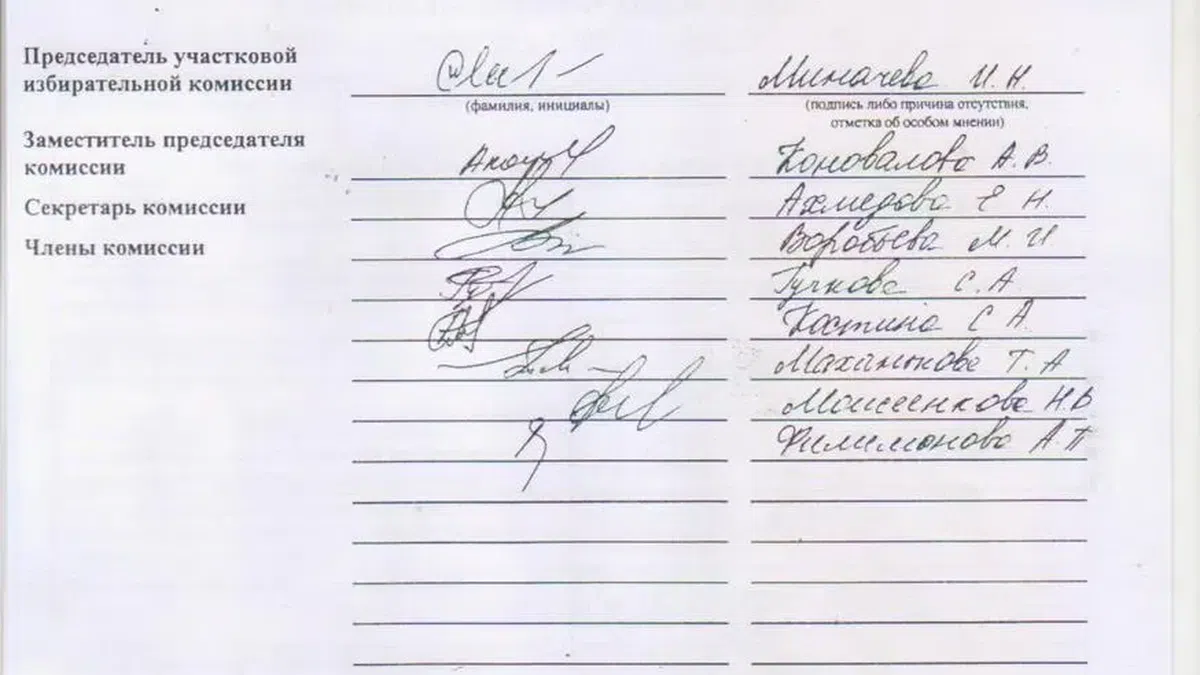 Председатель участковой
избирательной комиссии
Миначева И. Н.
(фамилия, инициалы)
(подпись либо причина отсутствия,
отметка об особом мнении)
Заместитель председателя
комиссии
Коновалова А. В.
Секретарь комиссии
Ахмедова Е Н.
Члены комиссии
Воробьева М. И
Гучкова С. А.
Костина С А.
Маханькова Т. А
Моисеенкова Н.В
Филимонова А.П